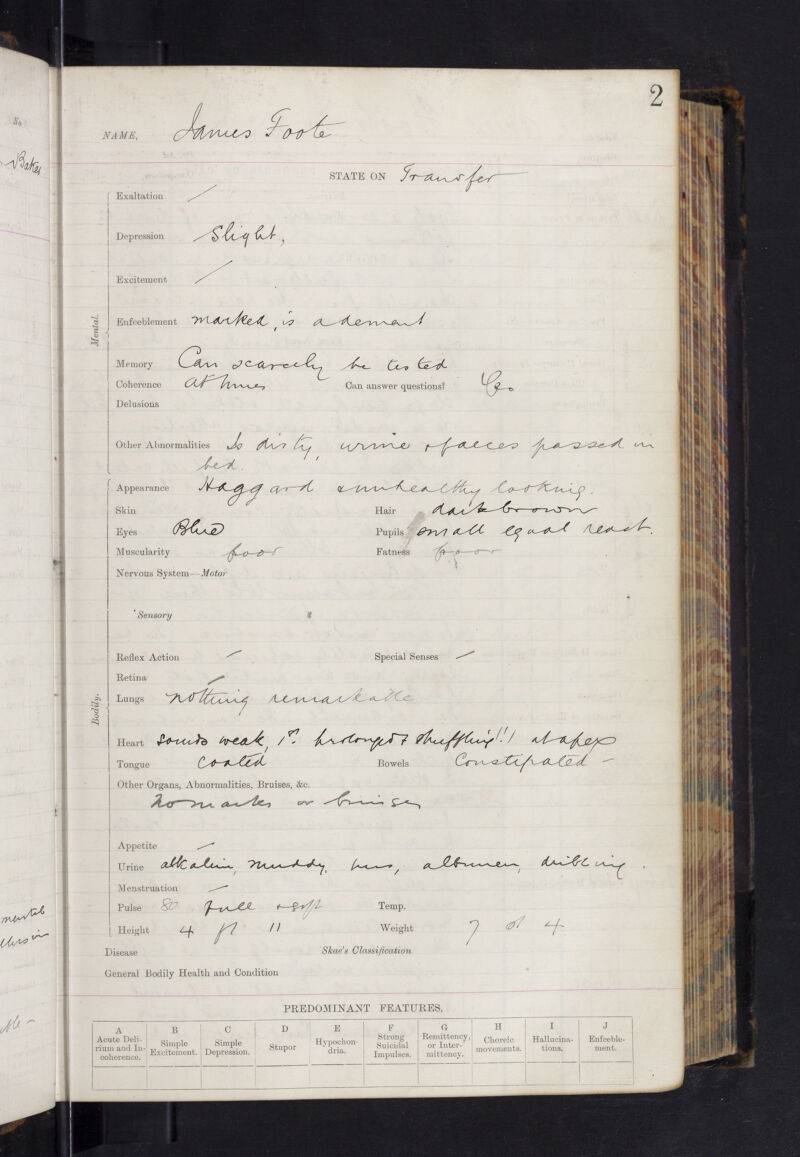 2
NAME, James Foote
STATE ON Transfer
Mental.
Exaltation /
Depression Slight,
Excitement /
Enfeeblement marked, is a dement
Memory Can scarcely be tested
Coherence at times Can answer questions? Yes
Delusions
Other Abnormalities Is dirty, urine & faeces passed in
bed.
Bodily.
Appearance Haggard & unhealthy looking.
Skin Hair dark brown
Eyes Blue Pupils small equal react.
Muscularity poor Fatness poor
Nervous System—Motor
Sensory
Reflex Action / Special Senses /
Retina /
Lungs nothing remarkable
Heart sounds weak, 1st prolonged & shuffling at apex
Tongue coated Bowels Constipated –
Other Organs, Abnormalities, Bruises, &c.
No marks or bruises
Appetite /
Urine alkaline, muddy, pus, albumen, dribbling.
Menstruation /
Pulse 80 Full & soft Temp.
Height 4 ft 11 Weight 7 st 4
Disease Skae's Classification
General Bodily Health and Condition
PREDOMINANT FEATURES.
A B C D E F G H I J
Acute Delirium and Incoherence. Simple Excitement. Simple Depression. Stupor Hypochondria. Strong Suicidal Impulses. Remittency, or Intermittency. Choreic movements. Hallucinations. Enfeeblement.